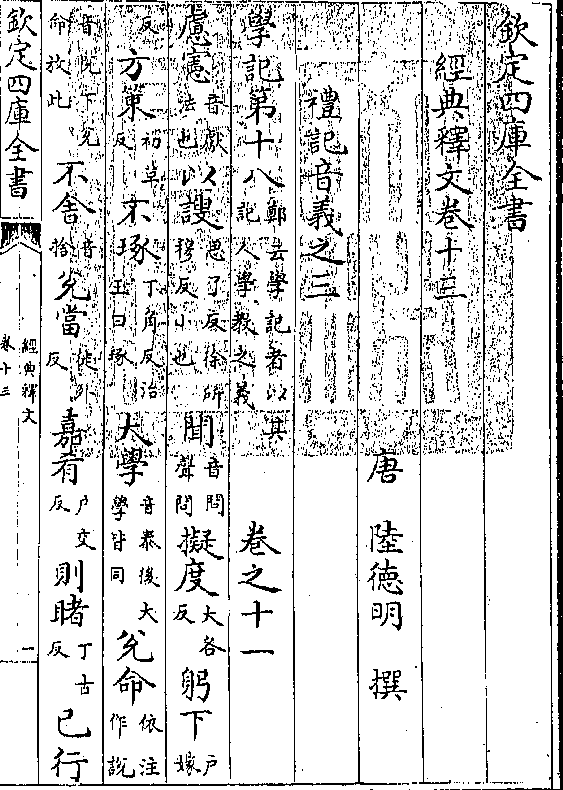 欽定四庫全書
經典釋文卷十三
唐 陸徳明 撰
禮記音義之三
學記第十八鄭云學記者以其記人學教之義 卷之十一
慮憲音獻法也以謏思了反徐所穆反小也聞音問聲問擬度大各反躬下户嫁
反方䇿初革反不琢丁角反治玉曰琢大學音泰後大學皆同兊命依注作説
音悦下兊命放此不舍音捨兊當徒外反嘉肴户交反則睹丁古反已行
欽定四庫全書
經典釋文
卷十三
一